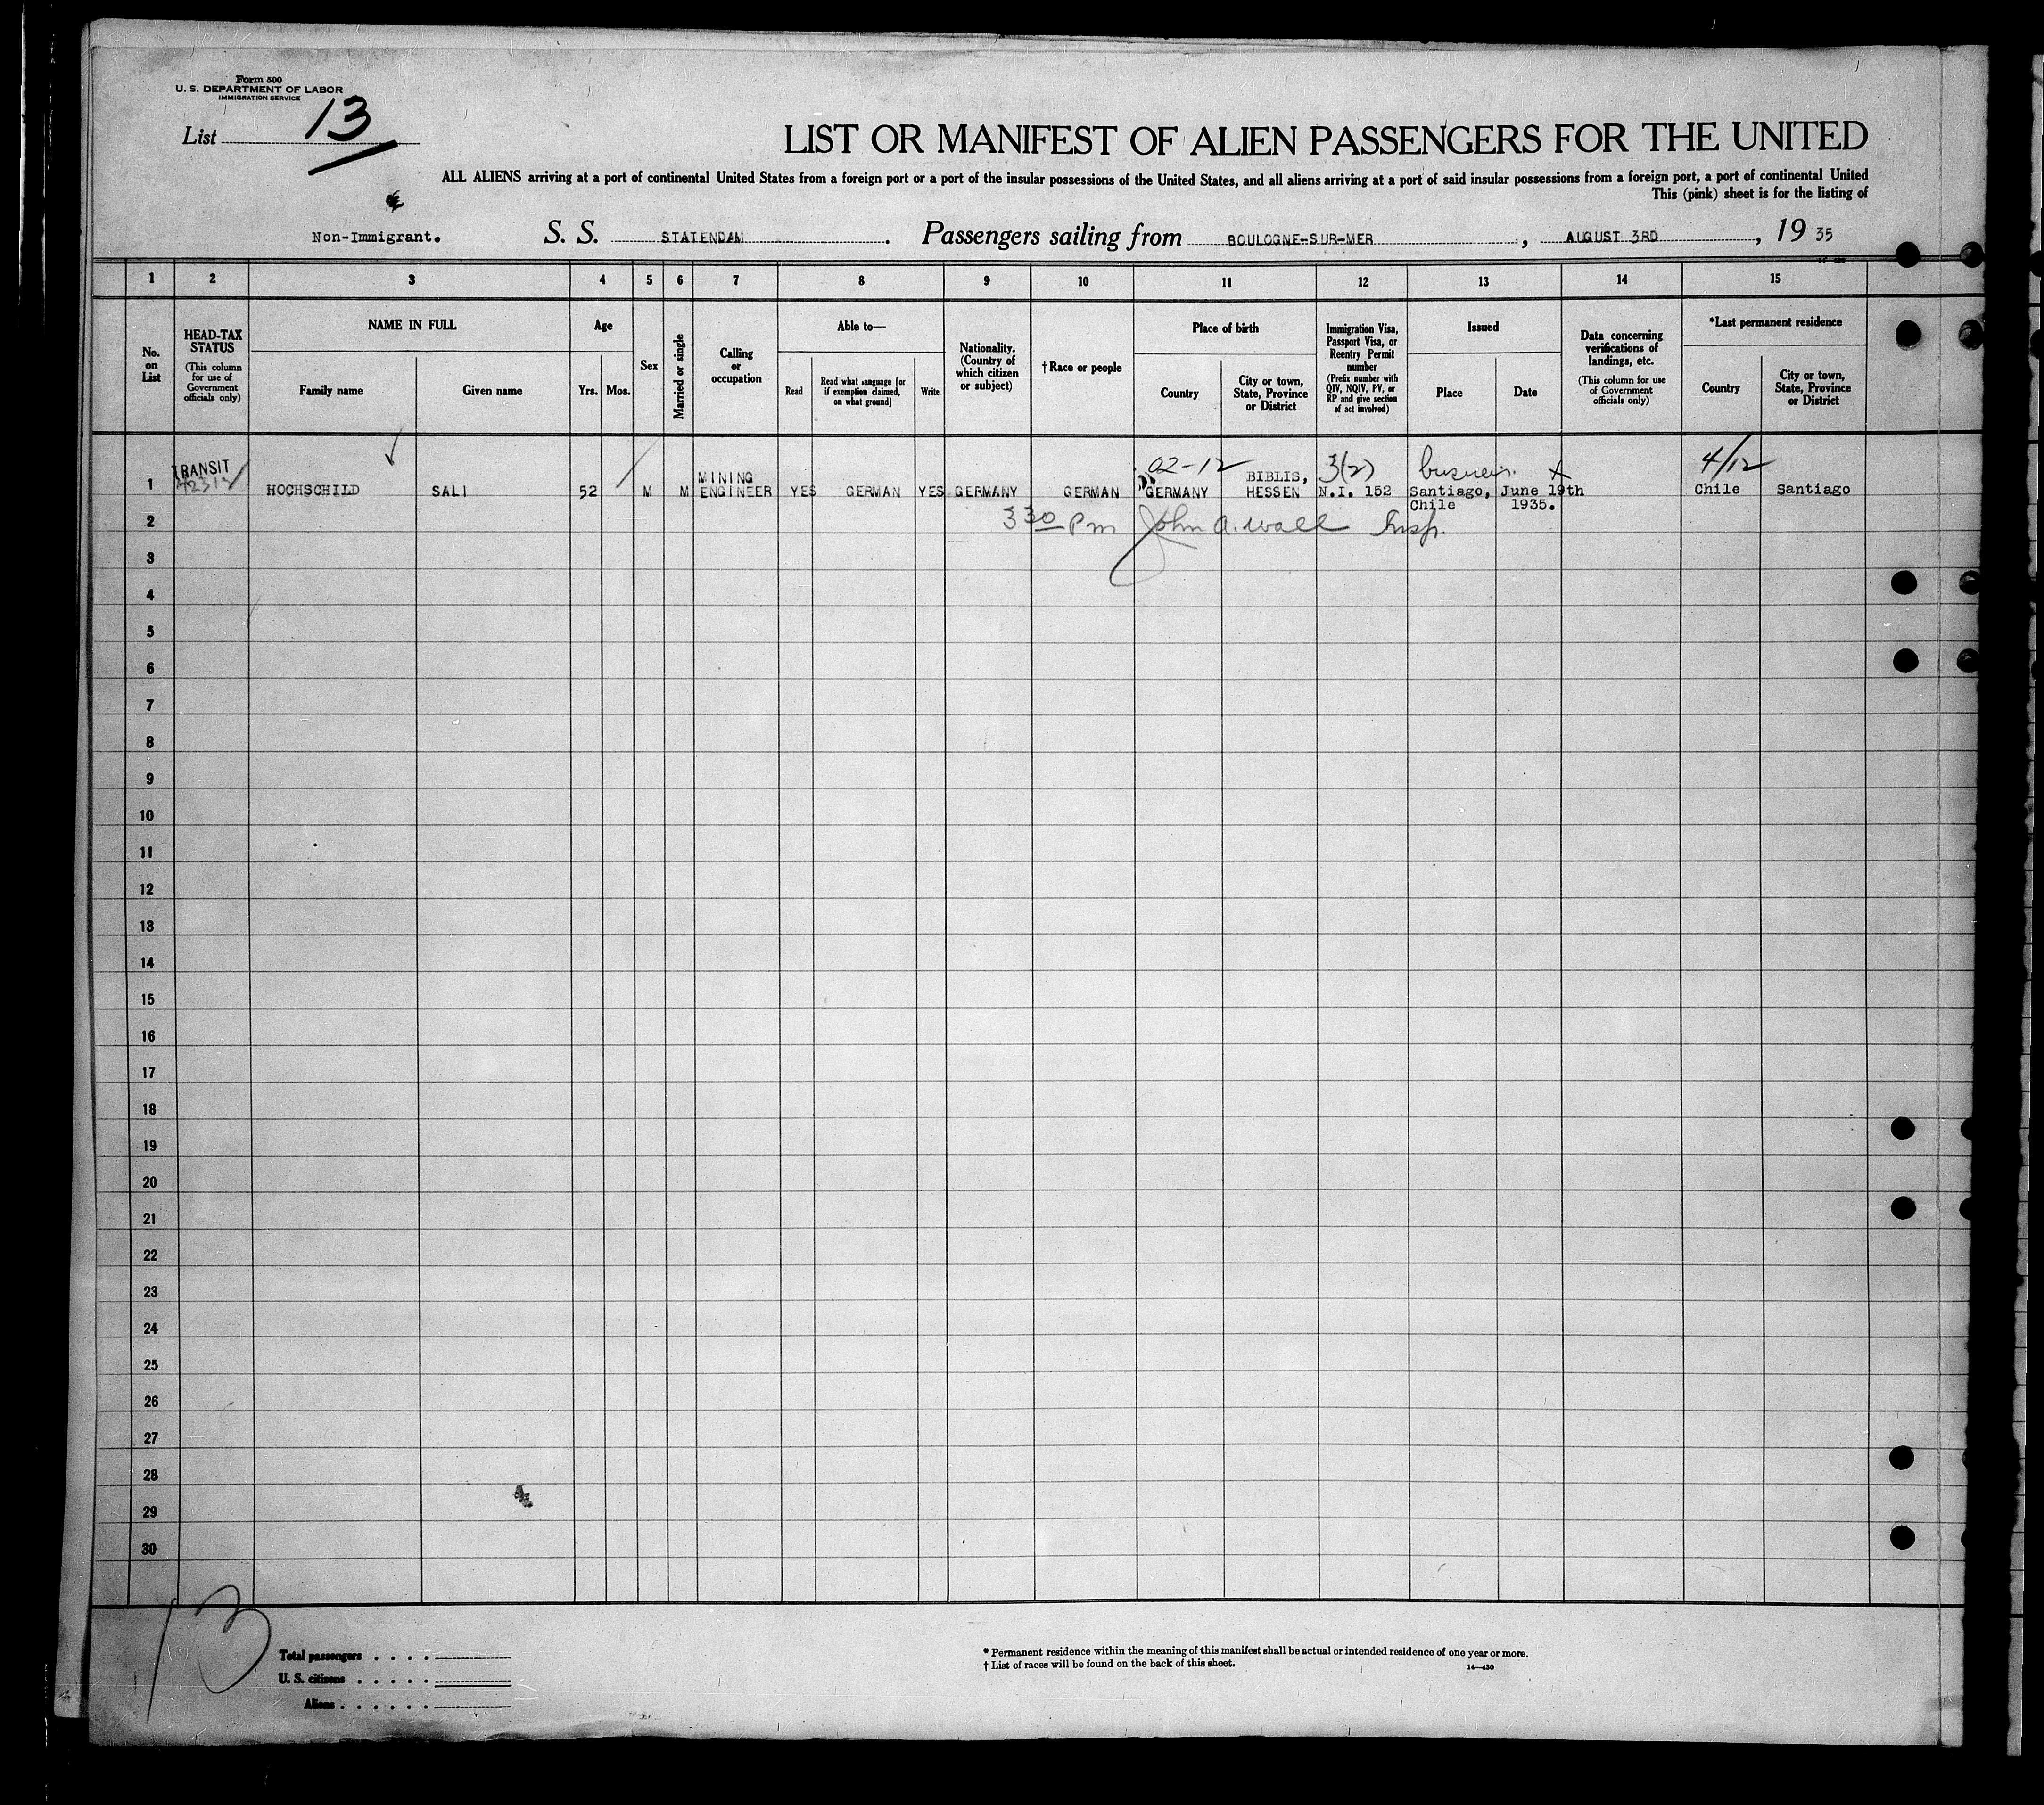 Form 500
U. S. DEPARTMENT OF LABOR
IMMIGRATION SERVICE
List 13
LIST OR MANIFEST OF ALIEN PASSENGERS FOR THE UNITED
ALL ALIENS arriving at a port of continental United States from a foreign port or a port of the insular possessions of the United States, and all aliens arriving at a port of said insular possessions from a foreign port, a port of continental United
This (pink) sheet is for the listing of
Non-Immigrant. S. S. STATENDAM. Passengers sailing from BOULOGNE-SUR-MER, AUGUST 3RD, 19 35
1 2 3 4 5 6 7 8 9 10 11 12 13 14 15
No. on List
HEAD-TAX STATUS
(This column for use of Government officials only)
NAME IN FULL
Family name
Given name
Age
Yrs.
Mos.
Sex
Married or single
Calling or occupation
Able to—
Read
Read what language [or if exemption claimed, on what ground]
Write
Nationality. (Country of which citizen or subject)
†Race or people
Place of birth
Country
City or town, State, Province or District
Immigration Visa, Passport Visa, or Reentry Permit number
(Prefix number with QIV, NQIV, PV, or RP and give section of act involved)
Issued
Place
Date
Data concerning verifications of landings, etc.
(This column for use of Government officials only)
*Last permanent residence
Country
City or town, State, Province or District
TRANSIT 02-12 3(2) business 4/12
MINING BIBLIS,
1 HOCHSCHILD SALI 52 M M ENGINEER YES GERMAN YES GERMANY GERMAN GERMANY HESSEN N.I. 152 Santiago, June 19th Chile Santiago
Chile 1935.
2 3 30 Pm John A. Wall Insp.
3
4
5
6
7
8
9
10
11
12
13
14
15
16
17
18
19
20
21
22
23
24
25
26
27
28
29
30
13
Total passengers
U. S. citizens
Aliens
* Permanent residence within the meaning of this manifest shall be actual or intended residence of one year or more.
† List of races will be found on the back of this sheet.
14—430